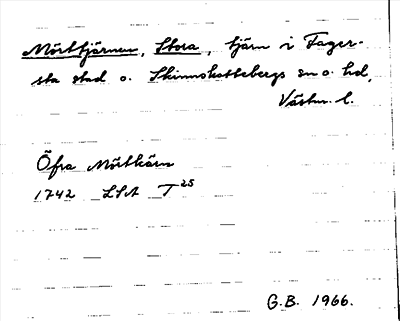 Mörttjärnen, Stora, tjärn i Fager-
sta stad o. Skinnskattebergs sn o. hd,
Västm. l.
Öfra Mörtkärn
1742 LSA T 25
G.B. 1966.